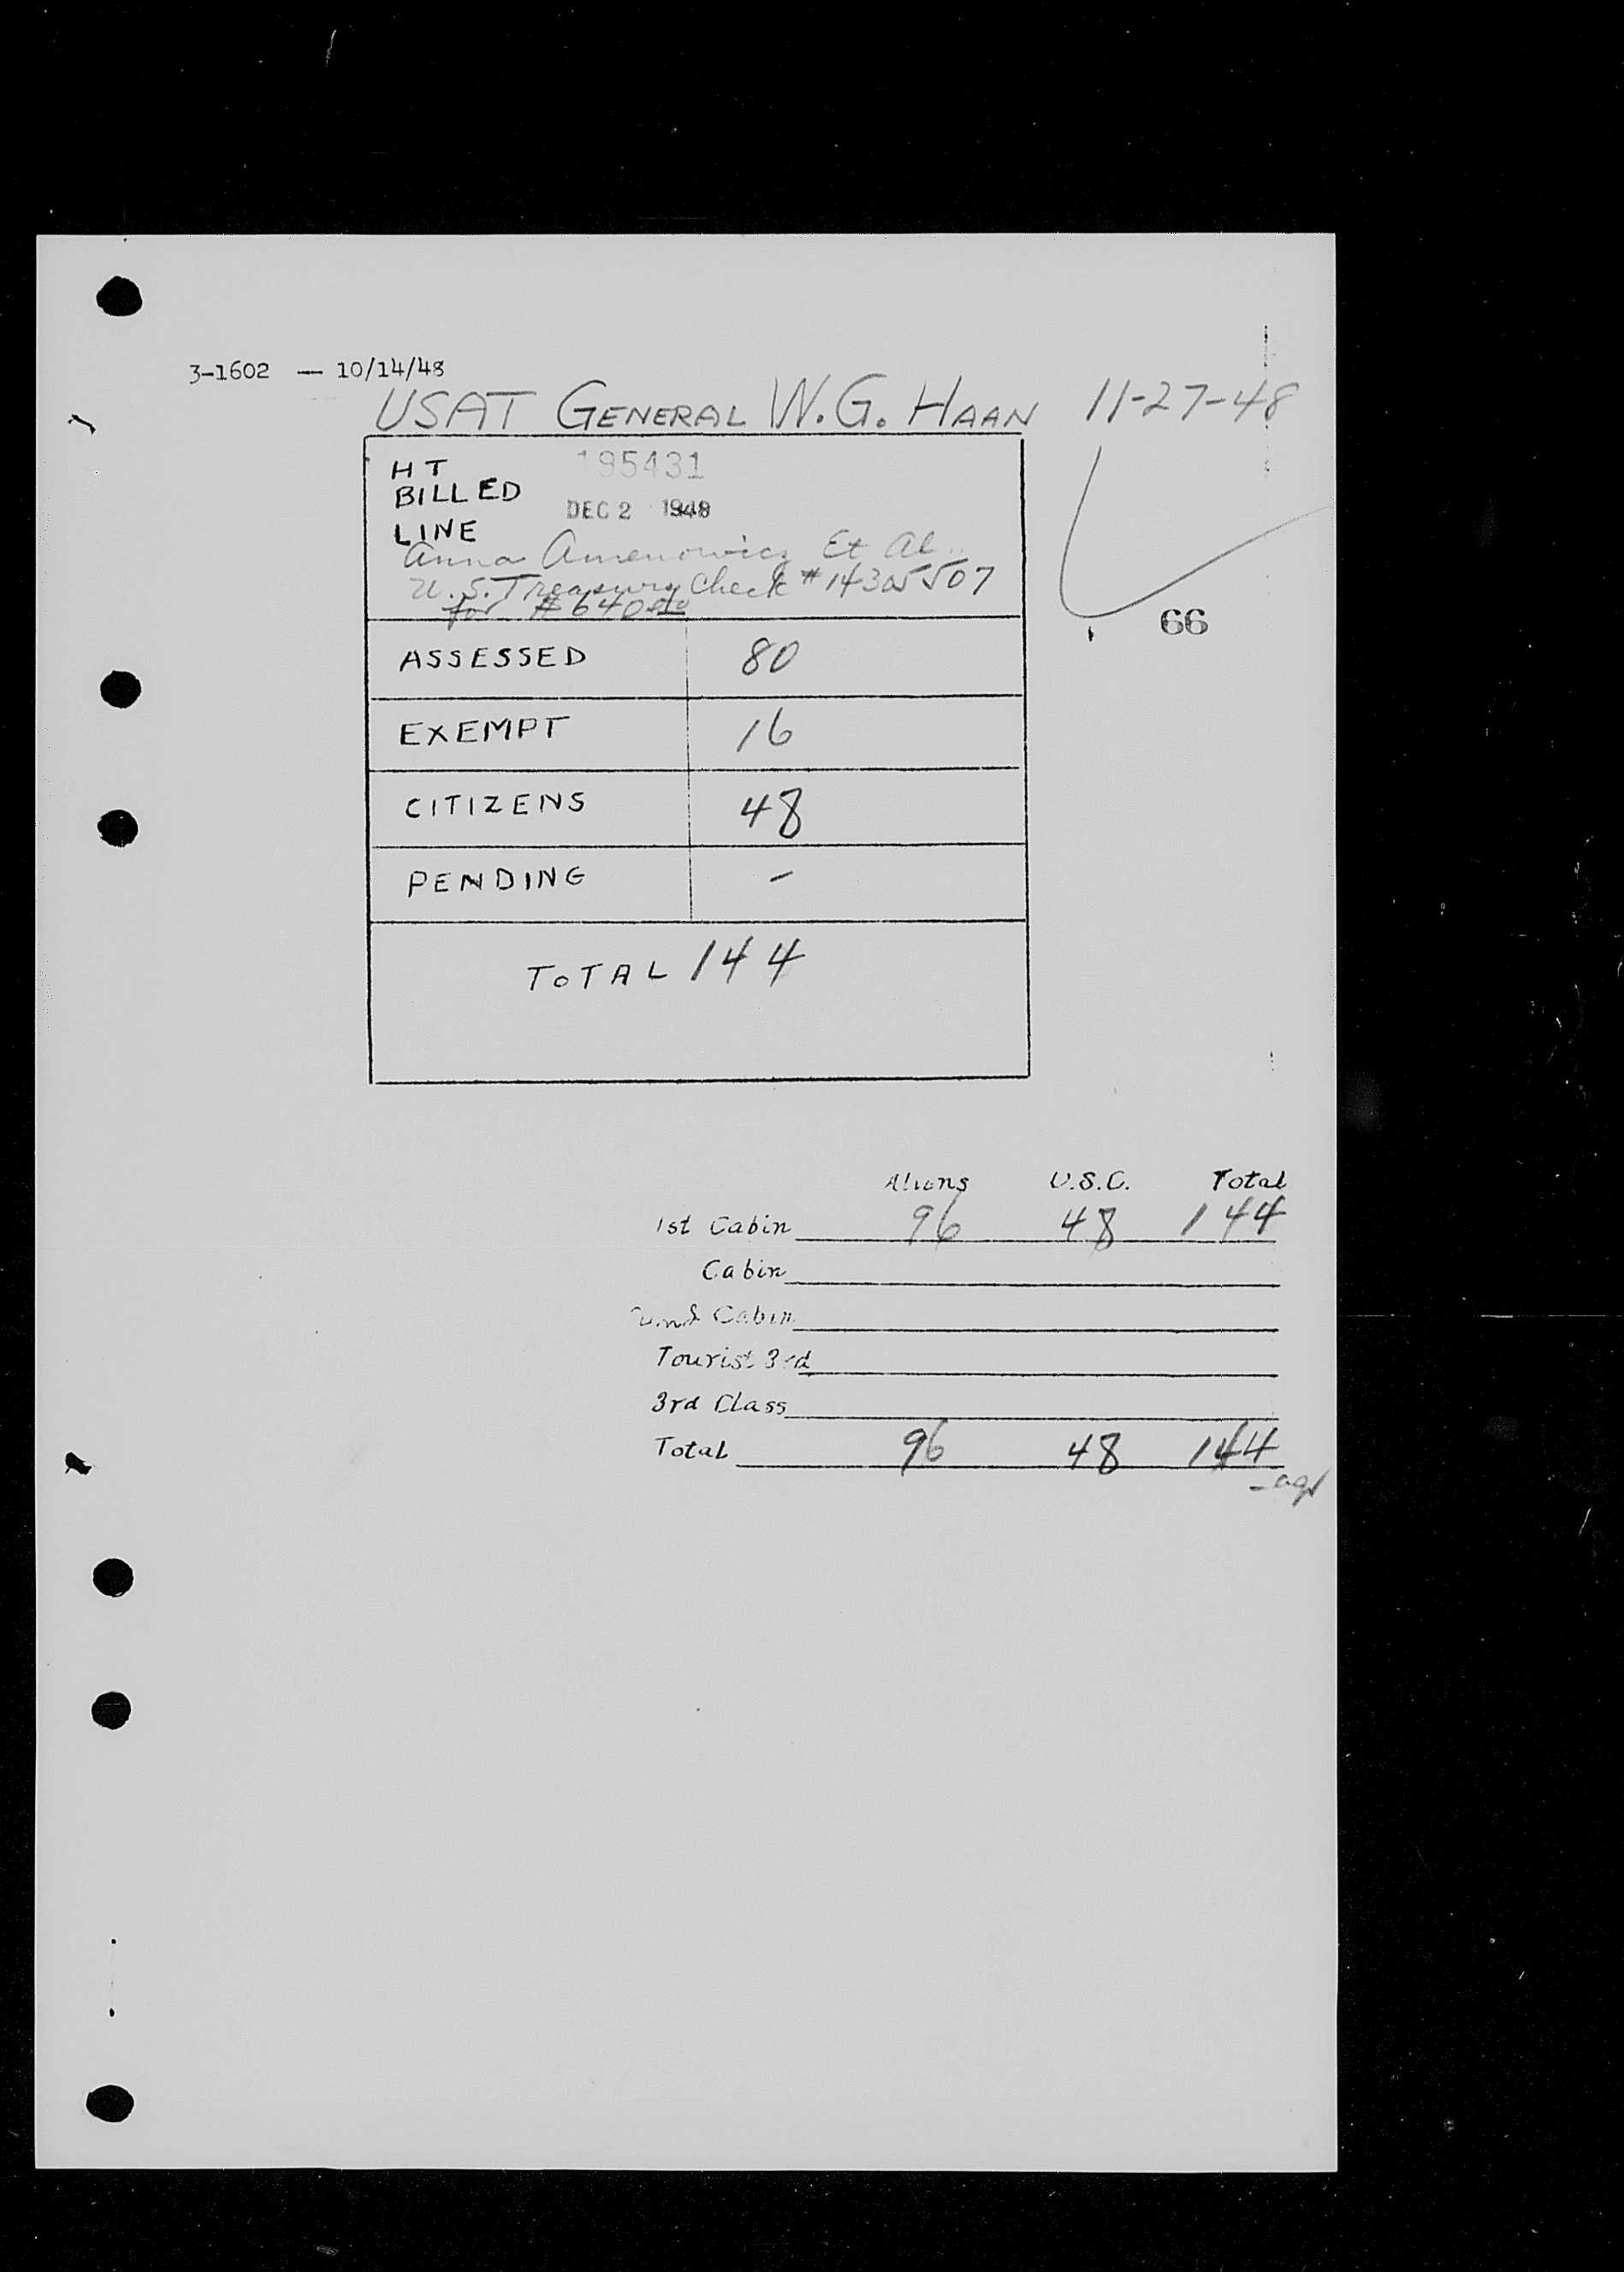 3-1602 — 10/14/48
USAT GENERAL W.G. HAAN 11-27-48
HT 195431
BILLED
DEC 2 1948
LINE
Anna Amenowicz Et Al
U.S. Treasury Check # 14305507
for $640.00
66
ASSESSED 80
EXEMPT 16
CITIZENS 48
PENDING -
TOTAL 144
Aliens U.S.C. Total
1st Cabin 96 48 144
Cabin
2nd Cabin
Tourist 3rd
3rd Class
Total 96 48 144